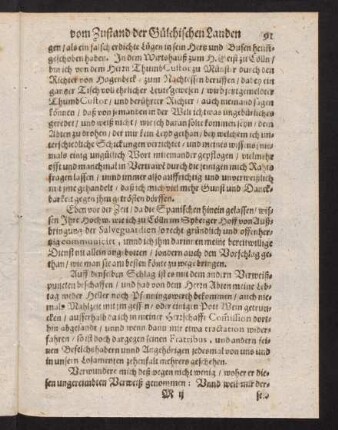 vom Zustand der Gülchischen Landen 91
gen / als ein falsch erdichte Lügen in sein Hertz und Busen heimb-
geschoben haben. In dem Wirtshauß zum H. Geist zu Cölln /
bin ich von dem Herrn Thumb Custor zu Münster durch den
Richter von Hogenbeck / zum Nachtessen beruffen / dabey ein
gar der Tisch voll ehrlicher Leute gewesen / wird jetzgemelter
Thumb Custor / und berührter Richter / auch niemand sagen
können / daß von jemanden in der Welt ich etwas ungebürliches
geredet / und weiß nicht / wie ich darzu solte kommen seyn / dem
Abten zu drohen / der mir kein Leyd gethan / bey welchem ich un-
terschiedliche Schickungen verrichtet / und meines wissens nie-
mals einig ungütlich Wort miteinander gepflogen / vielmehr
offt und manchmal in Vertrauwen durch die jenigen mich Rahts
fragen lassen / und immer also auffrichtig und unverweißlich
mit jme gehandelt / daß ich mich viel mehr Gunst und Danck-
barkeit gegen jhm getrösten dörffen.
Eben vor der Zeit / da die Spanischen hinein gelassen / wis-
sen Ihre Hochw. wie ich zu Cölln im Hoff von Auß-
bringung der Salveguardien / so recht gründlich und offenher-
tzig communicirt, und ich ihm darinn meine bereitwillige
Dienst mit allem angebotten / sondern auch den Vorschlag ge-
than / wie man sie am besten könte zu wege bringen.
Auff denselben Schlag ist es mit dem andern Verweiß-
puncten beschaffen / und hab von dem Herrn Abten meine Leb-
tag weder Heller noch Pfenningswerth bekommen / auch nie-
mals Mahlzeit mit jhm gessen / oder einigen Pott Wein getrun-
cken / ausserhalb da ich in meiner Hirtzhafft Comission dort-
hin abgesandt / und wenn dann mir etwa tractation wider-
fahren / so ist doch dargegen seinen Fratribus, und andern sei-
nen Befelchshabern unnd Angehörigen jedesmal von uns und
in unsern Losamenten zehenfalt mehrers geschehen.
Verwundere mich deßwegen nicht wenig / woher er die-
sen ungereimdten Verweiß genommen: Vnnd weil mir der-
M ij